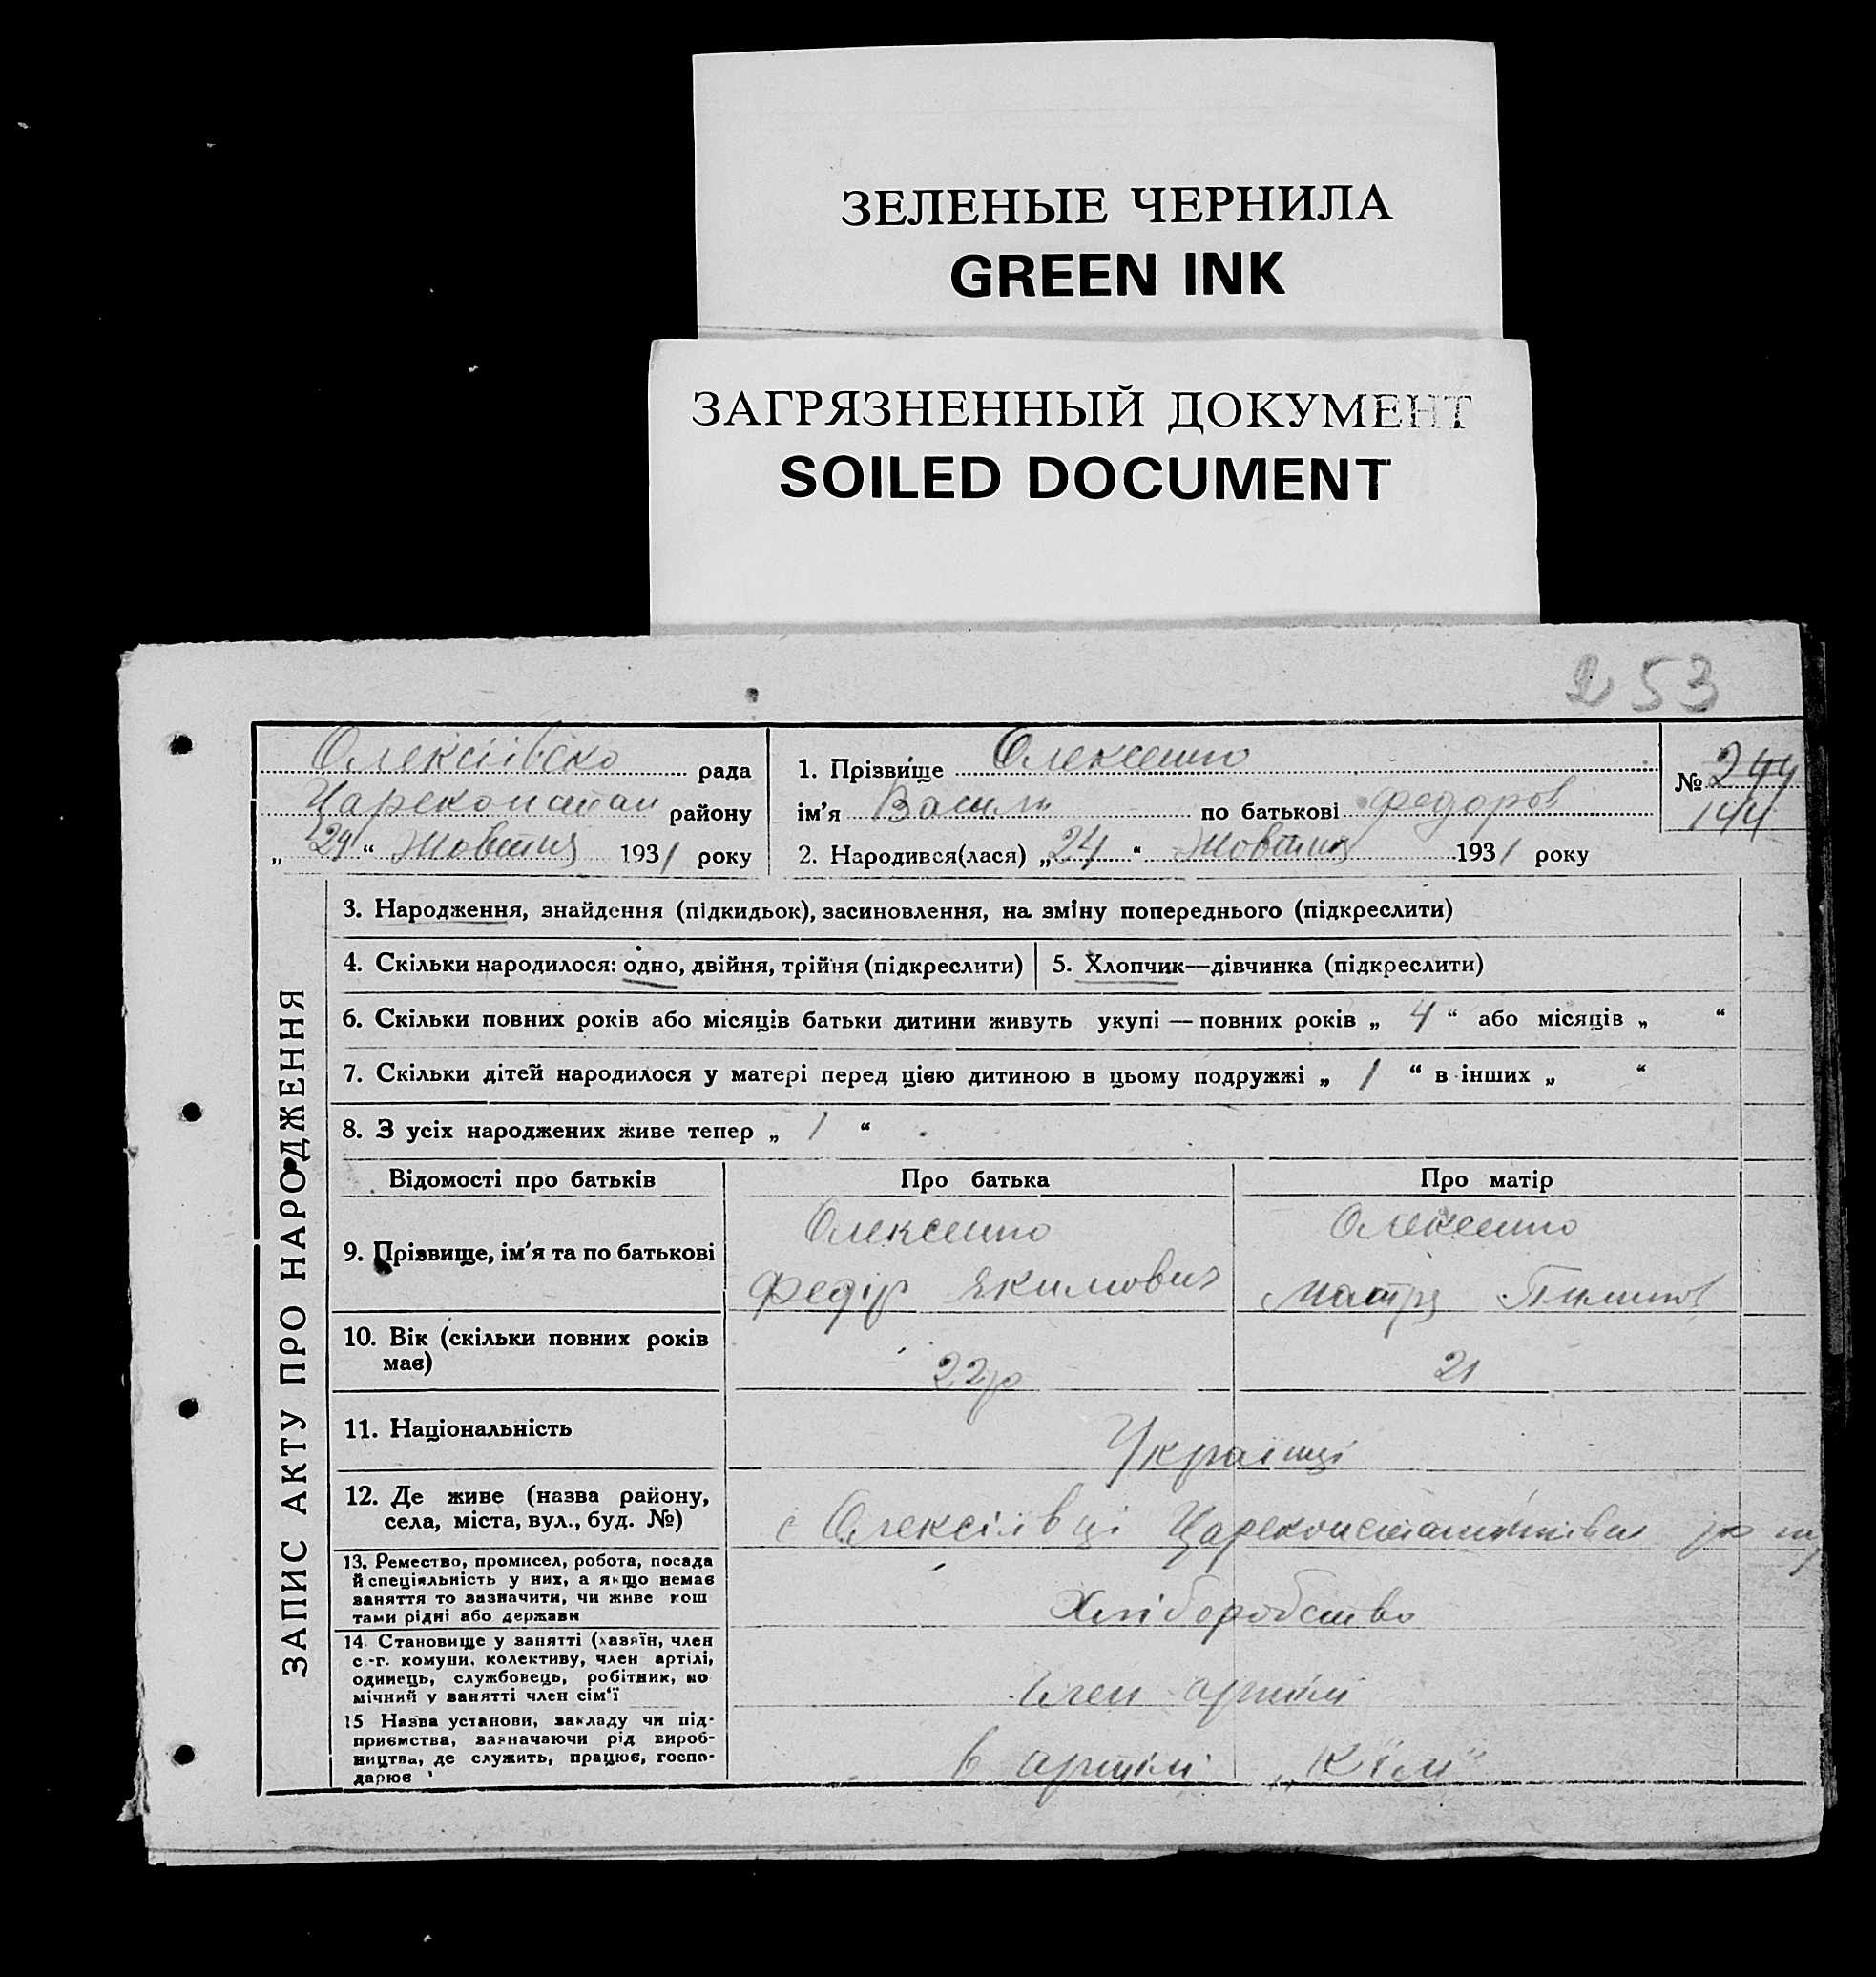 ЗЕЛЕНЫЕ ЧЕРНИЛА
GREEN INK
ЗАГРЯЗНЕННЫЙ ДОКУМЕНТ
SOILED DOCUMENT
253
Олексіївско рада
Цареконстан району
„29“ Жовтня 1931 року
1. Прізвище Олексенко
ім'я Василь по батькові Федоров
2. Народився(лася) „24“ Жовтня 1931 року
№ 244
144
ЗАПИС АКТУ ПРО НАРОДЖЕННЯ
3. Народження, знайдення (підкидьок), засиновлення, на зміну попереднього (підкреслити)
4. Скільки народилося: одно, двійня, трійня (підкреслити)
5. Хлопчик—дівчинка (підкреслити)
6. Скільки повних років або місяців батьки дитини живуть укупі — повних років „ 4 “ або місяців „ “
7. Скільки дітей народилося у матері перед цією дитиною в цьому подружжі „ 1 “ в інших „ “
8. З усіх народжених живе тепер „ 1 “
Відомості про батьків
Про батька
Про матір
9. Прізвище, ім'я та по батькові
Олексенко
Федір Якимович
Олексенко
Пилипов
10. Вік (скільки повних років
має)
22р
21
11. Національність
Українці
12. Де живе (назва району,
села, міста, вул., буд. №)
с Олексіївці Цареконстантинівск
13. Ремество, промисел, робота, посада
й спеціяльність у них, а якщо немає
заняття то зазначити, чи живе кош
тами рідні або держави
Хліборобство
14. Становище у занятті (хазяїн, член
с.-г. комуни, колективу, член артілі,
одинець, службовець, робітник, по
мічний у занятті член сім'ї
Член артілі
15 Назва установи, закладу чи під-
приємства, зазначаючи рід вироб-
ництва, де служить, працює, госпо-
дарює
в артілі „КІМ“